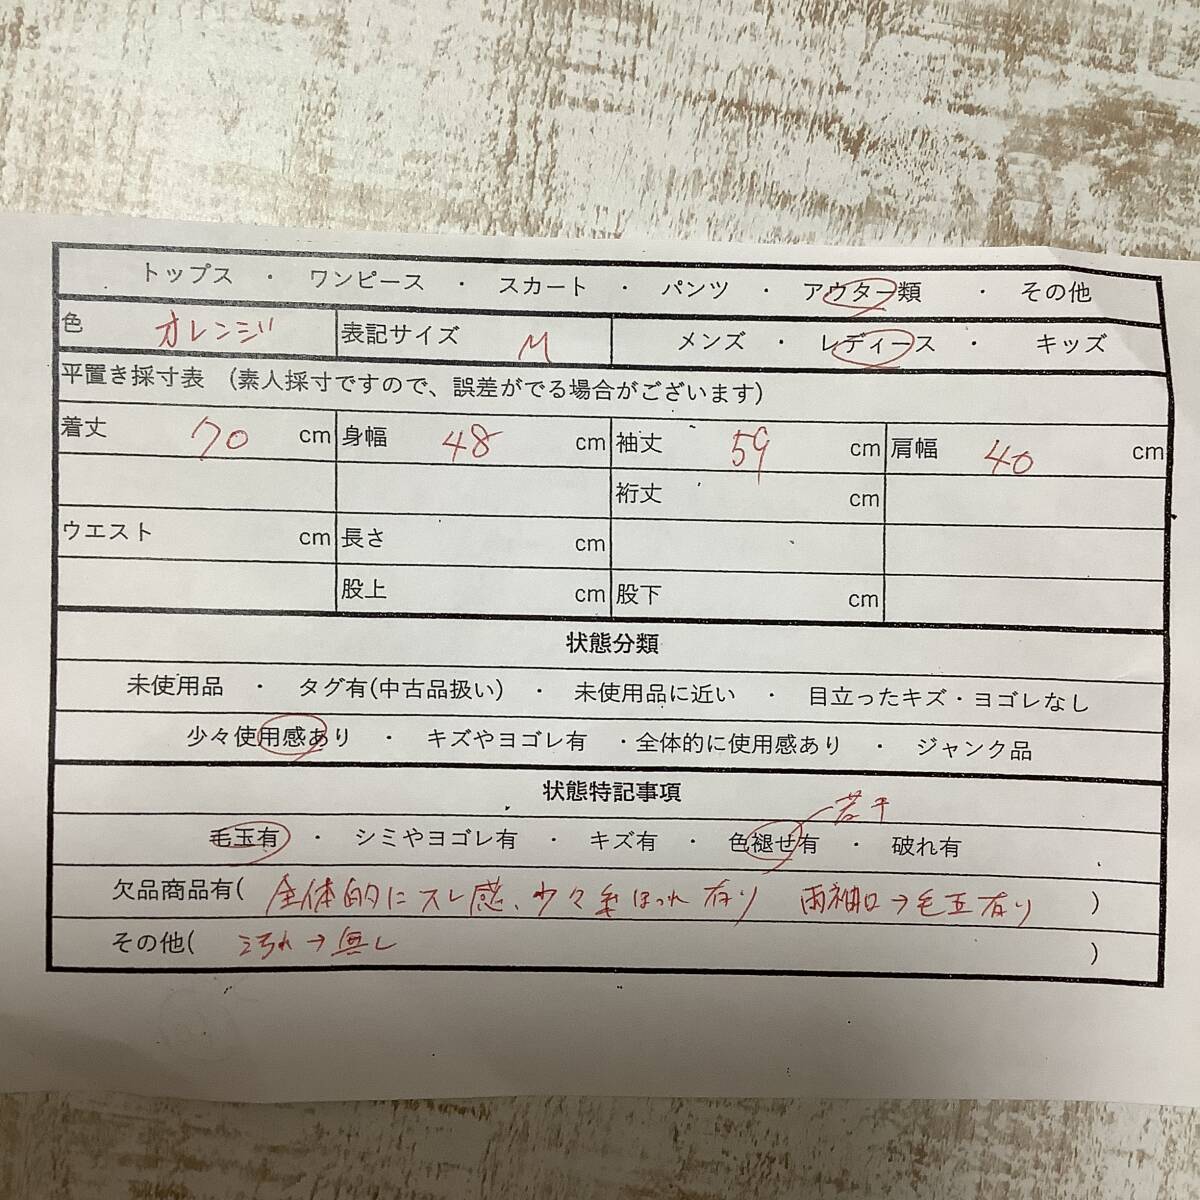 トップス ・ ワンピース ・ スカート ・ パンツ ・ アウター類 ・ その他
色 オレンジ 表記サイズ M メンズ ・ レディース ・ キッズ
平置き採寸表 (素人採寸ですので、誤差がでる場合がございます)
着丈 70 cm 身幅 48 cm 袖丈 59 cm 肩幅 40 cm
裄丈 cm
ウエスト cm 長さ cm
股上 cm 股下 cm
状態分類
未使用品 ・ タグ有(中古品扱い) ・ 未使用品に近い ・ 目立ったキズ・ヨゴレなし
少々使用感あり ・ キズやヨゴレ有 ・全体的に使用感あり ・ ジャンク品
状態特記事項
若干
毛玉有 ・ シミやヨゴレ有 ・ キズ有 ・ 色褪せ有 ・ 破れ有
欠品商品有( 全体的にスレ感、少々糸ほつれ有り 両袖口→毛玉有り )
その他( 汚れ→無し )